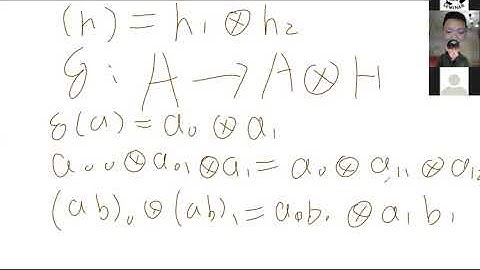 (h) = h₁ ⊗ h₂
δ : A → A ⊗ H
δ(a) = a₀ ⊗ a₁
a₀₀ ⊗ a₀₁ ⊗ a₁ = a₀ ⊗ a₁₁ ⊗ a₁₂
(ab)₀ ⊗ (ab)₁ = a₀b₀ ⊗ a₁b₁